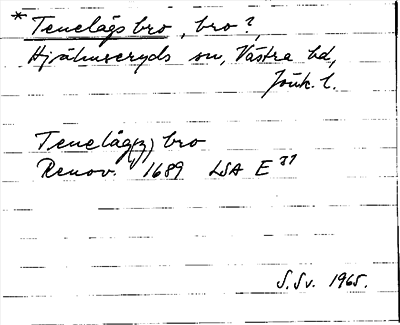 * Tenelågs bro, bro?,
Hjälmseryds sn, Västra hd,
Jönk. l.
Tenelåg(z) bro
Renov. 1689 LSA E 37
S. Sv. 1965.